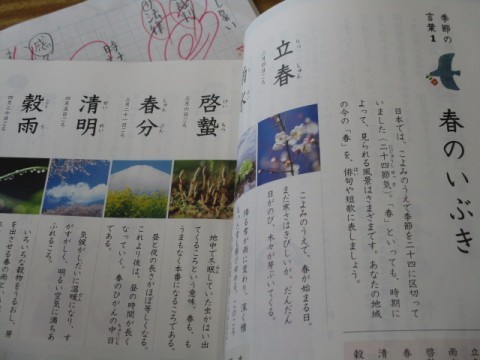 季節の
言葉1
春のいぶき
日本では、こよみのうえで季節を二十四に区切って
いました（二十四節気）。「春」といっても、時期に
よって、見られる風景はさまざまです。あなたの地域
の今の「春」を、俳句や短歌に表しましょう。
立春
りっしゅん
二月四日ごろ
こよみのうえで、春が始まる日。
まだ寒さはきびしいが、だんだん
日がのび、木々が芽ぶいてくる。
啓蟄
けいちつ
三月六日ごろ
地中で冬眠していた虫がはい出
てくるころという意味。春も、も
うまもなく本番になるころである。
春分
しゅんぶん
三月二十一日ごろ
昼と夜の長さがほぼ等しくなる。
これより後は、昼の時間が長く
なっていく。春のひがんの中日
清明
せいめい
四月五日ごろ
気候がしだいに温暖になり、す
がすがしく、明るい空気に満ちあ
ふれるころ。
穀雨
こくう
四月二十日ごろ
いろいろな穀物をうるおし、芽
を出させる春の雨
立
雨
啓
春
清
穀